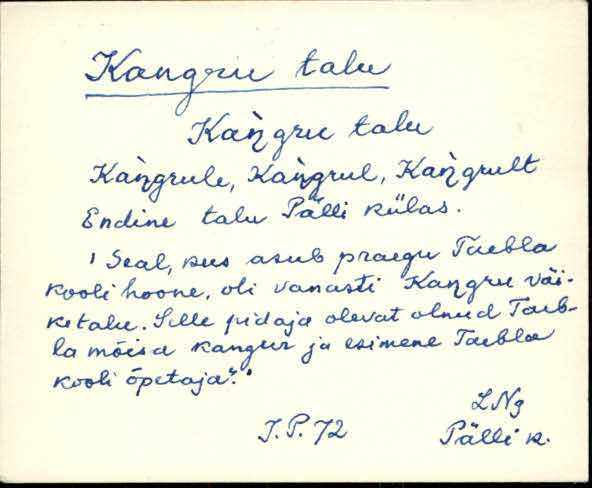 Kangru talu
Kaŋ̀gru talu
Kaŋ̀grule, Kaŋ̀grul, Kaŋ̀grult
Endine talu Pälli külas.
' Seal, kus asub praegu Taebla
kooli hoone, oli vanasti Kaŋgru väi-
ketalu. Selle pidaja olevat olnud Taeb-
la mõisa kangur ja esimene Taebla
kooli õpetaja.'
LNg
J.P. 72 Pälli k.